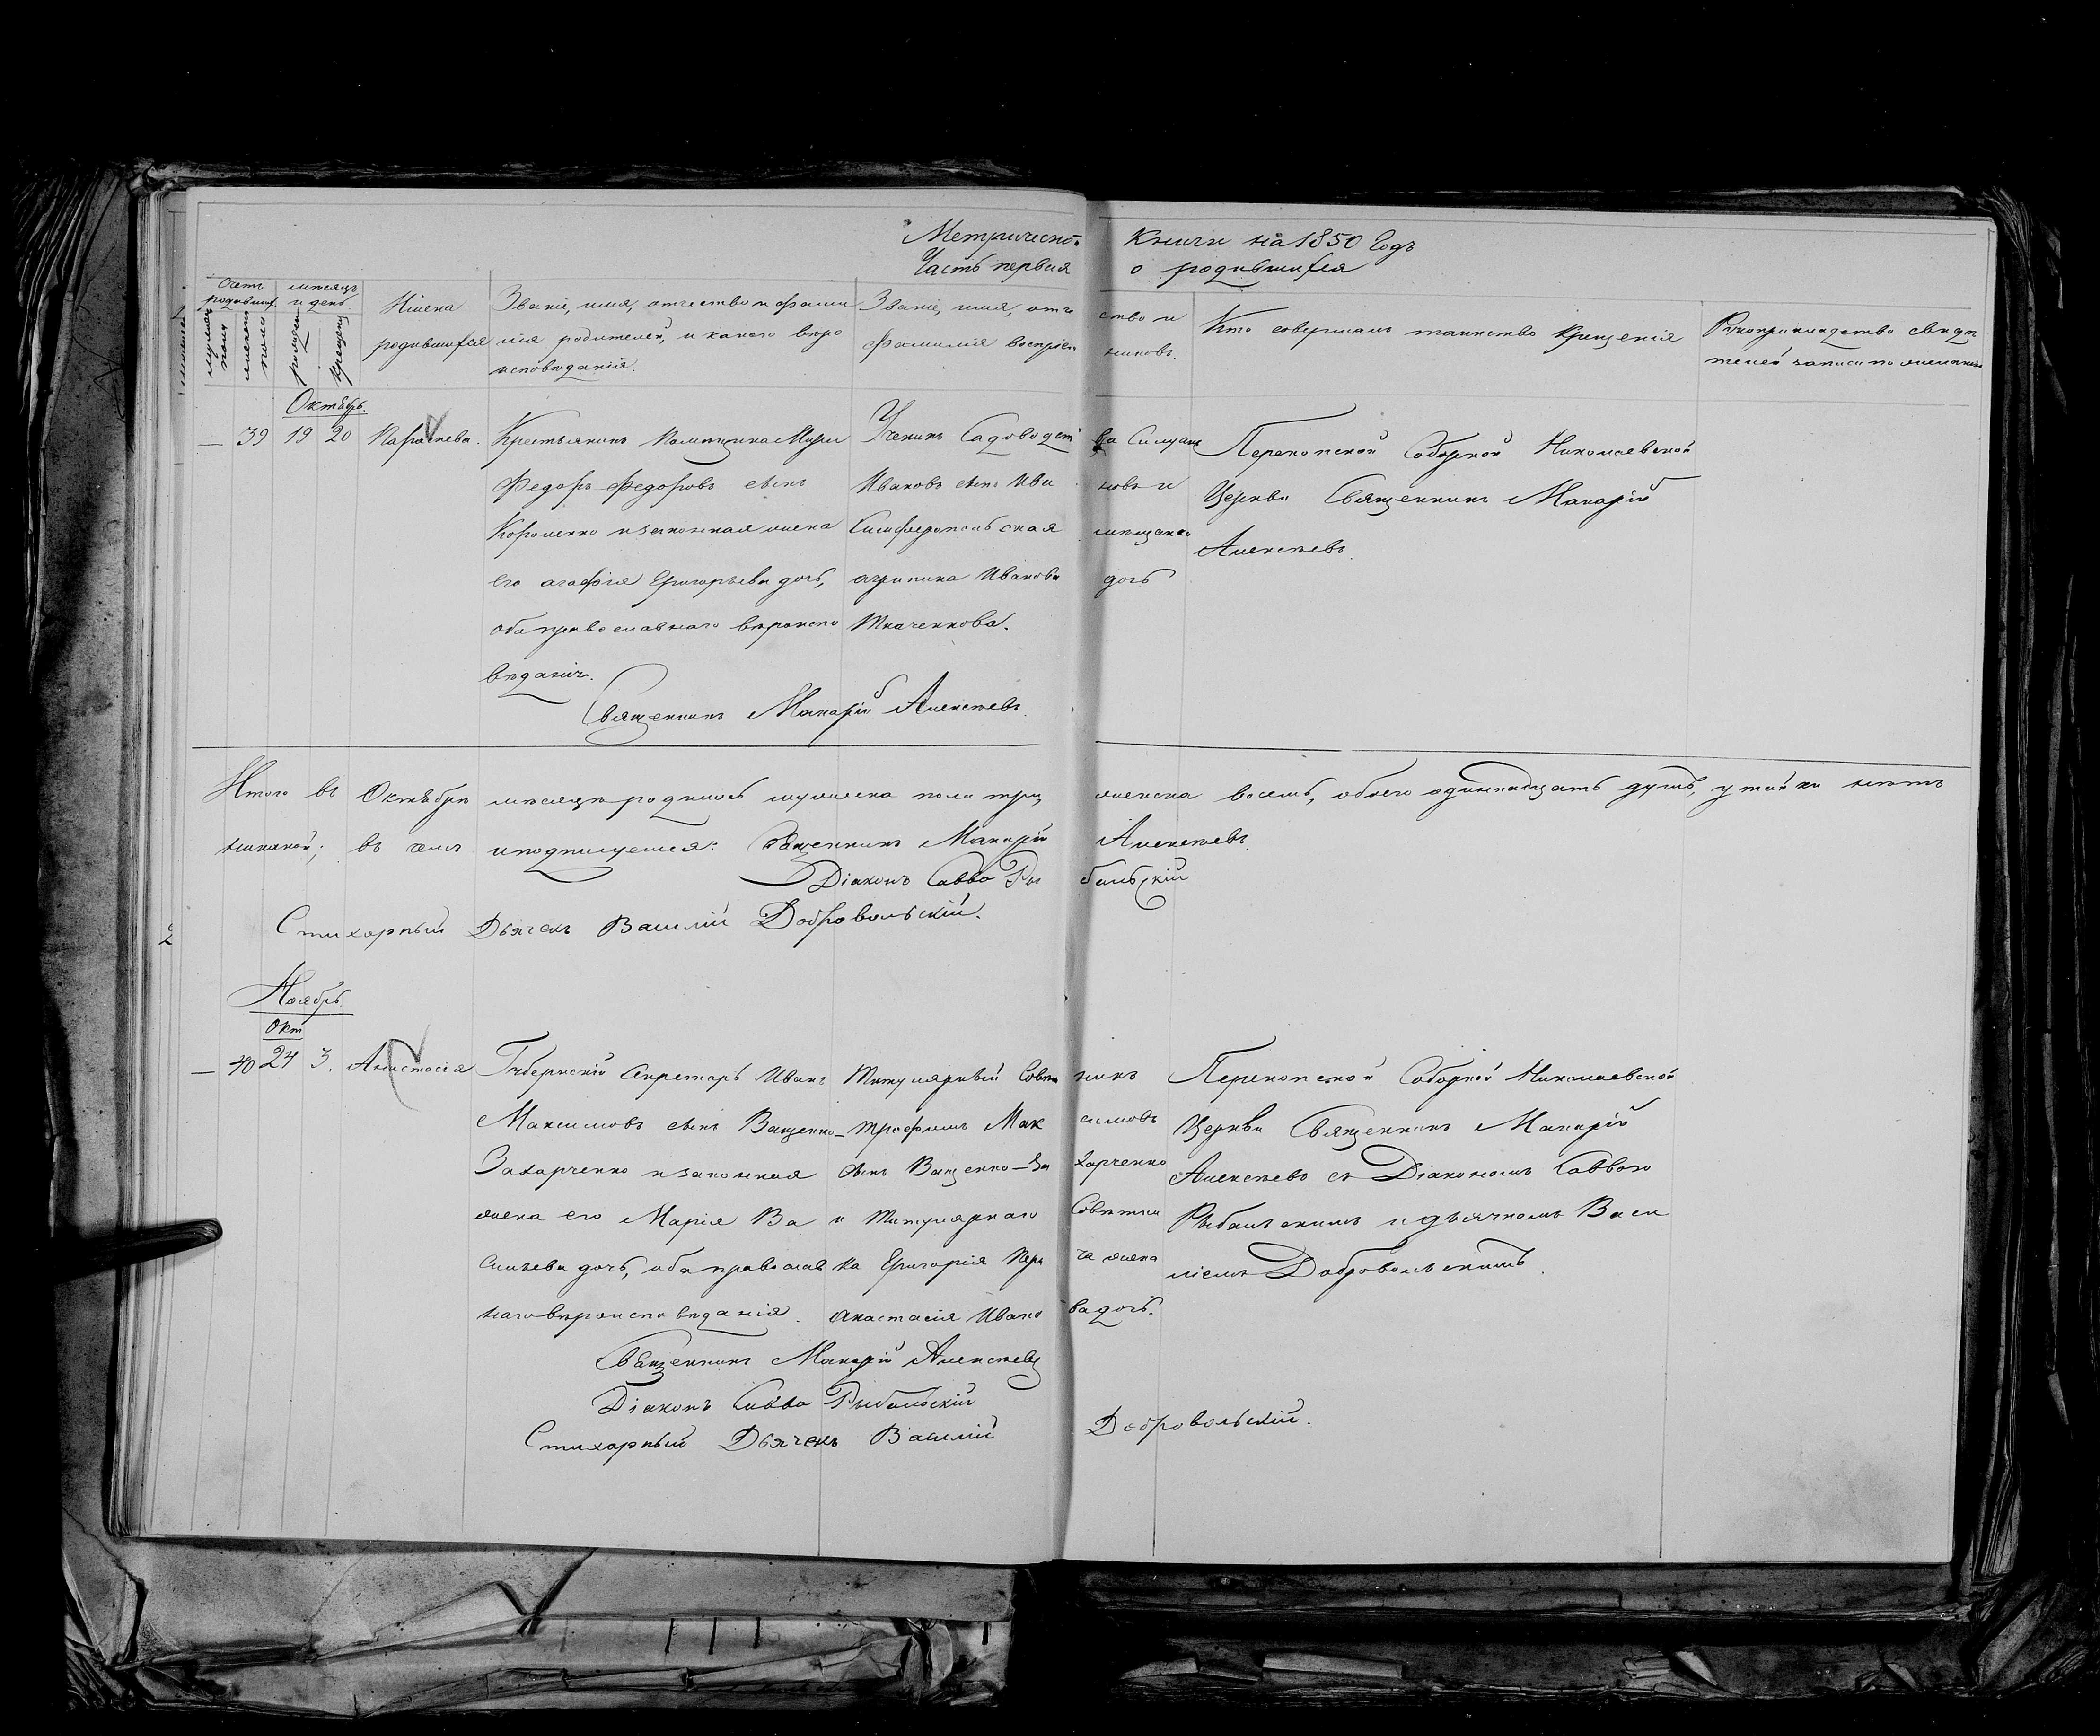 Метрической Книги на 1850 Годъ
Часть первая о родившихся
Счетъ родившихся
мужеска пола
женска пола
мѣсяцъ и день
рожденія
крещенія
Имена родившихся
Званіе, имя, отчество и фами
лія родителей, и какого вѣро
исповѣданія.
Званіе, имя, отче
ство и
фамилія воспріем
никовъ.
Кто совершалъ таинство крещенія
Рукоприкладство свидѣ
телей записи по желанію
Октябрь.
— 39 19 20 Параскева. Крестьянинъ Помѣщика
Федоръ Федоровъ сынъ
Короленко и законная жена
его агафія Григорьева дочь,
оба православнаго вѣроиспо
вѣданія.
Ученикъ Садоводст ва
Ивановъ сынъ Ива новъ и
Симферопольская мѣщанка
агрипина Иванова дочь
Ткаченкова.
Перекопской Соборной Николаевской
Церкви Священникъ Макарій
Алексѣевъ.
Священникъ Макарій Алексѣевъ
Итого въ Октябрѣ мѣсяцѣ родилось мужеска пола три, женска восемь, обоего одиннадцать душъ, утайки нѣтъ
никакой; въ чемъ и подпишемся: Священникъ Макарій Алексѣевъ.
Діаконъ Савва Рыбальскій
Стихарный Дьячекъ Василій Добровольскій.
Ноябрь.
Окт
— 40 24 3. Анастасія Губернскій Секретарь Иванъ
Максимовъ сынъ Ващенко-
Захарченко и законная
жена его Марія Ва
сильева дочь, оба православ
наго вѣроисповѣданія.
Титулярный Совѣт никъ
Трофимъ Мак симовъ
сынъ Ващенко-За харченко
и Титулярнаго Совѣтни
ка Григорія жена
анастасія Ивано ва дочь.
Перекопской Соборной Николаевской
Церкви Священникъ Макарій
Алексѣевъ съ Діакономъ Саввою
Рыбальскимъ и дьячкомъ Васи
ліемъ Добровольскимъ.
Священникъ Макарій Алексѣевъ
Діаконъ Савва Рыбальскій
Стихарный Дьячекъ Василій Добровольскій.